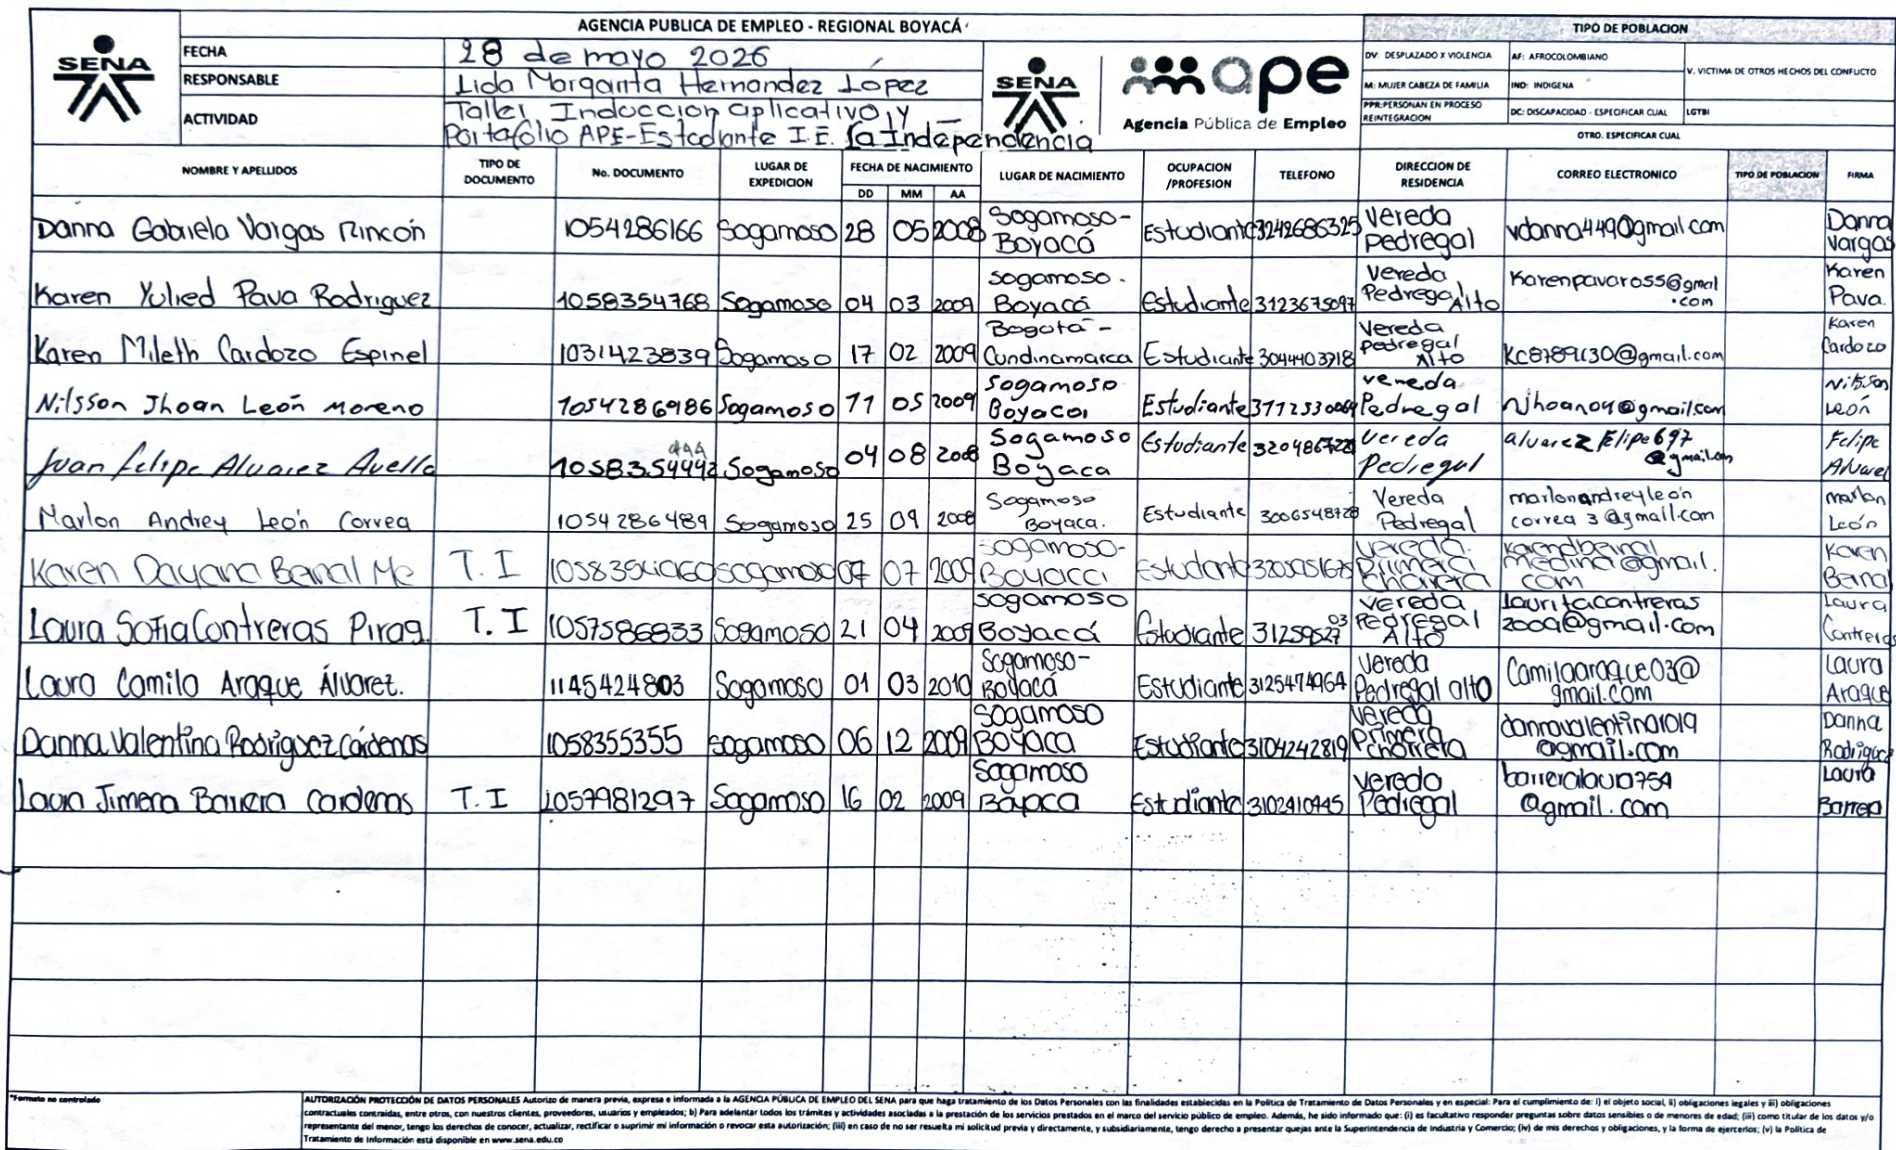 AGENCIA PUBLICA DE EMPLEO - REGIONAL BOYACÁ
TIPO DE POBLACION
SENA
FECHA 28 de mayo 2026
RESPONSABLE Lida Margarita Hernandez López
ACTIVIDAD Taller Induccion aplicativo y
Portafolio APE-Estudiante I.E. la Independencia
SENA
ape
Agencia Pública de Empleo
DV: DESPLAZADO X VIOLENCIA AF: AFROCOLOMBIANO V. VICTIMA DE OTROS HECHOS DEL CONFLICTO
M: MUJER CABEZA DE FAMILIA IND: INDIGENA
PPR:PERSONAN EN PROCESO REINTEGRACION DC: DISCAPACIDAD - ESPECIFICAR CUAL LGTBI
OTRO. ESPECIFICAR CUAL
NOMBRE Y APELLIDOS TIPO DE DOCUMENTO No. DOCUMENTO LUGAR DE EXPEDICION FECHA DE NACIMIENTO DD MM AA LUGAR DE NACIMIENTO OCUPACION /PROFESION TELEFONO DIRECCION DE RESIDENCIA CORREO ELECTRONICO TIPO DE POBLACION FIRMA
Danna Gabriela Vargas Rincón 1054286166 Sogamoso 28 05 2008 Sogamoso- Boyacá Estudiante 3242686325 Vereda Pedregal vdanna449@gmail.com Danna Vargas
Karen Yulied Pava Rodriguez 1058354768 Sogamoso 04 03 2009 Sogamoso. Boyacá Estudiante 3123675097 Vereda Pedregal Alto Karenpavaross@gmal.com Karen Pava.
Karen Mileth Cardozo Espinel 1031423839 Sogamoso 17 02 2009 Bogotá- Cundinamarca Estudiante 3044403718 Vereda pedregal Alto @gmail.com Karen Cardozo
Nilsson Jhoan León Moreno 1054286986 Sogamoso 11 05 2009 Sogamoso Boyaca Estudiante vereda Pedregal Njhoano4@gmail.com Nilsson León
Juan Felipe Alvarez Avella Sogamoso 04 08 2008 Sogamoso Boyaca Estudiante Vereda Pedregal alvarez felipe697 Felipe
Marlon Andrey León Correa 1054286489 Sogamoso 25 09 2008 Sogamoso Boyaca. Estudiante 3006548728 Vereda Pedregal marlonandreyleón correa3@gmail.com marlon León
Karen Dayana Bernal Me T.I Sogamoso 07 07 2009 Sogamoso- Boyacá Estudiante Vereda Primera Chorrera medina@gmail.com Karen Bernal
Laura Sofia Contreras Pirag. T.I 1057586833 Sogamoso 21 04 2009 Sogamoso Boyacá Estudiante Vereda Pedregal Alto lauritacontreras 2009@gmail.com Laura Contreras
Laura Camila Araque Álvarez. 1145424803 Sogamoso 01 03 2010 Sogamoso- Boyacá Estudiante 3125474964 Vereda Pedregal alto Camilaaraque03@ gmail.com Laura Araque
Danna Valentina Rodriguez Cárdenas 1058355355 Sogamoso 06 12 2009 Sogamoso Boyaca Estudiante 3104242819 Vereda Primera Chorrera dannavalentina1019 @gmail.com Danna Rodriguez
Laura Jimena Barrera Cardenas T.I 1057981297 Sogamoso 16 02 2009 Sogamoso Boyaca Estudiante 3102410445 Vereda Pedregal barreralaura754 @gmail.com Laura Barrera
*Formato no controlado
AUTORIZACIÓN PROTECCIÓN DE DATOS PERSONALES Autorizo de manera previa, expresa e informada a la AGENCIA PÚBLICA DE EMPLEO DEL SENA para que haga tratamiento de los Datos Personales con las finalidades establecidas en la Política de Tratamiento de Datos Personales y en especial: Para el cumplimiento de: i) el objeto social, ii) obligaciones legales y iii) obligaciones
contractuales contraidas, entre otros, con nuestros clientes, proveedores, usuarios y empleados; b) Para adelantar todos los trámites y actividades asociadas a la prestación de los servicios prestados en el marco del servicio público de empleo. Además, he sido informado que: (i) es facultativo responder preguntas sobre datos sensibles o de menores de edad; (ii) como titular de los datos y/o
representante del menor, tengo los derechos de conocer, actualizar, rectificar o suprimir mi información o revocar esta autorización; (iii) en caso de no ser resuelta mi solicitud previa y directamente, y subsidiariamente, tengo derecho a presentar quejas ante la Superintendencia de Industria y Comercio; (iv) de mis derechos y obligaciones, y la forma de ejercerlos; (v) la Política de
Tratamiento de Información está disponible en www.sena.edu.co